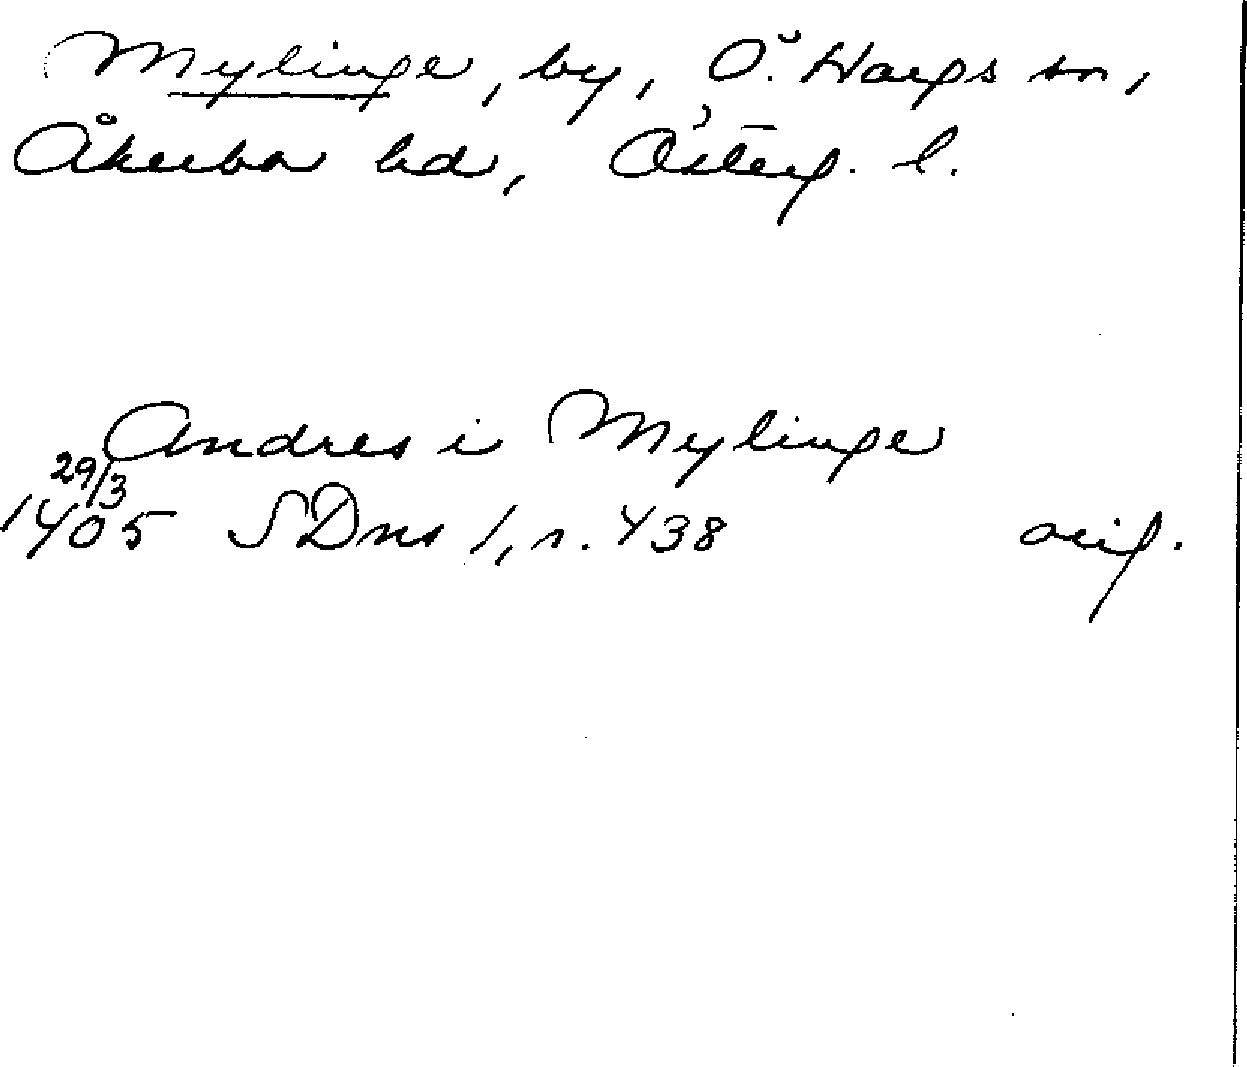 Mylinge, by, Ö. Hargs sn,
Åkerbo hd, Österg. l.
Andres i Mylinge
29/3
1405 SDns 1, s. 438 orig.